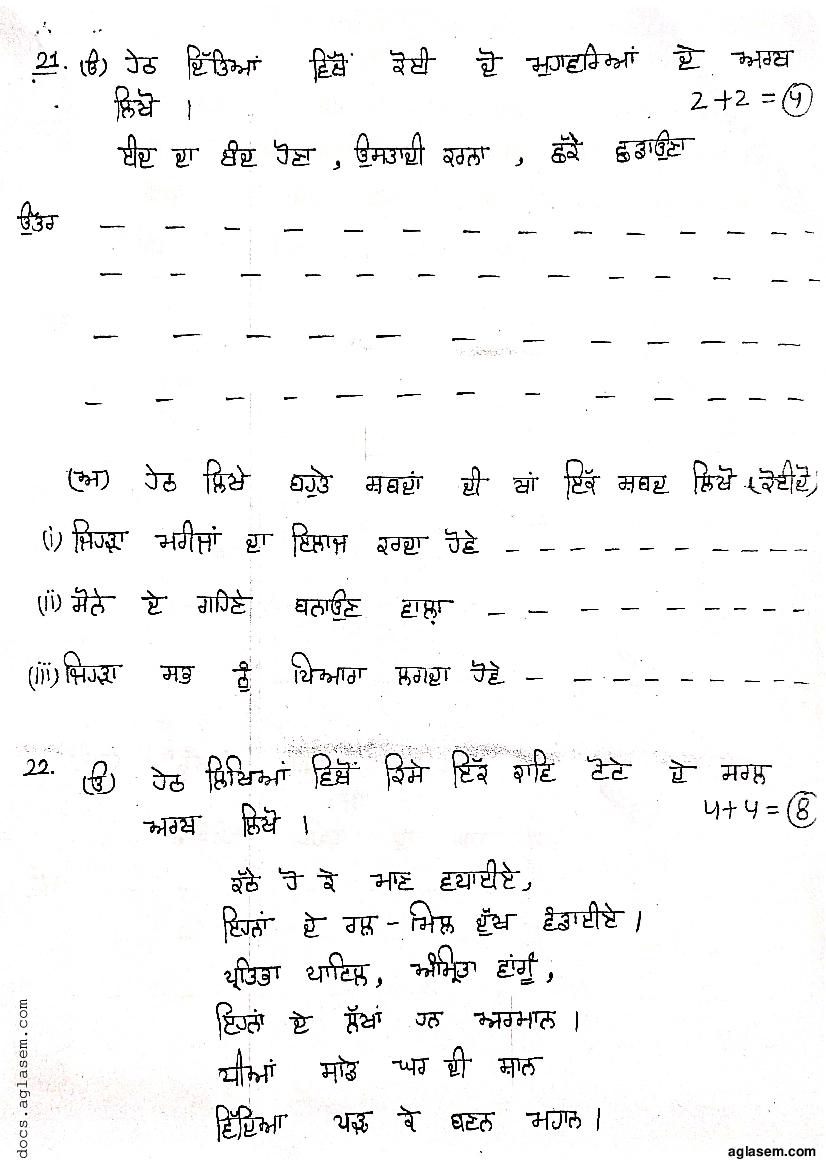 21. (ੳ) ਹੇਠ ਦਿੱਤਿਆਂ ਵਿੱਚੋਂ ਕੋਈ ਦੋ ਮੁਹਾਵਰਿਆਂ ਦੇ ਅਰਥ
ਲਿਖੋ । 2+2 = 4
ਈਦ ਦਾ ਚੰਦ ਹੋਣਾ , ਉਸਤਾਦੀ ਕਰਨਾ , ਛੱਕੇ ਛੁਡਾਉਣਾ
ਉੱਤਰ
(ਅ) ਹੇਠ ਲਿਖੇ ਬਹੁਤੇ ਸ਼ਬਦਾਂ ਦੀ ਥਾਂ ਇੱਕ ਸ਼ਬਦ ਲਿਖੋ (ਕੋਈ ਦੋ)
(i) ਜਿਹੜਾ ਮਰੀਜਾਂ ਦਾ ਇਲਾਜ ਕਰਦਾ ਹੋਵੇ
(ii) ਸੋਨੇ ਦੇ ਗਹਿਣੇ ਬਨਾਉਣ ਵਾਲਾ
(iii) ਜਿਹੜਾ ਸਭ ਨੂੰ ਪਿਆਰਾ ਲਗਦਾ ਹੋਵੇ
22. (ੳ) ਹੇਠ ਲਿਖਿਆਂ ਵਿੱਚੋਂ ਕਿਸੇ ਇੱਕ ਕਾਵਿ ਟੋਟੇ ਦੇ ਸਰਲ
ਅਰਥ ਲਿਖੋ । 4+4 = 8
ਕੱਠੇ ਹੋ ਕੇ ਮਾਣ ਵਧਾਈਏ,
ਇਹਨਾਂ ਦੇ ਰਲ਼-ਮਿਲ਼ ਦੁੱਖ ਵੰਡਾਈਏ ।
ਪ੍ਰਤਿਭਾ ਪਾਟਿਲ, ਅੰਮ੍ਰਿਤਾ ਵਾਂਗੂੰ,
ਇਹਨਾਂ ਦੇ ਲੱਖਾਂ ਹਨ ਅਰਮਾਨ ।
ਧੀਆਂ ਸਾਡੇ ਘਰ ਦੀ ਸ਼ਾਨ
ਵਿੱਦਿਆ ਪੜ੍ਹ ਕੇ ਬਣਨ ਮਹਾਨ ।
docs.aglasem.com
aglasem.com